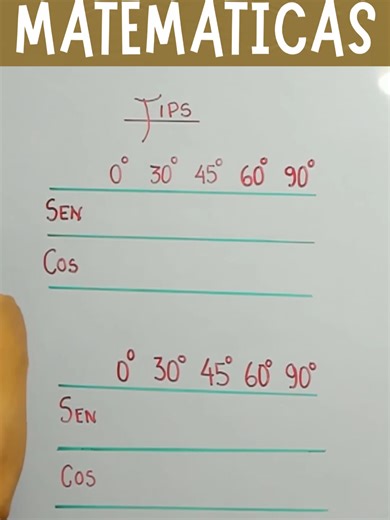 MATEMATICAS
TIPS
0° 30° 45° 60° 90°
SEN
COS
0° 30° 45° 60° 90°
SEN
COS